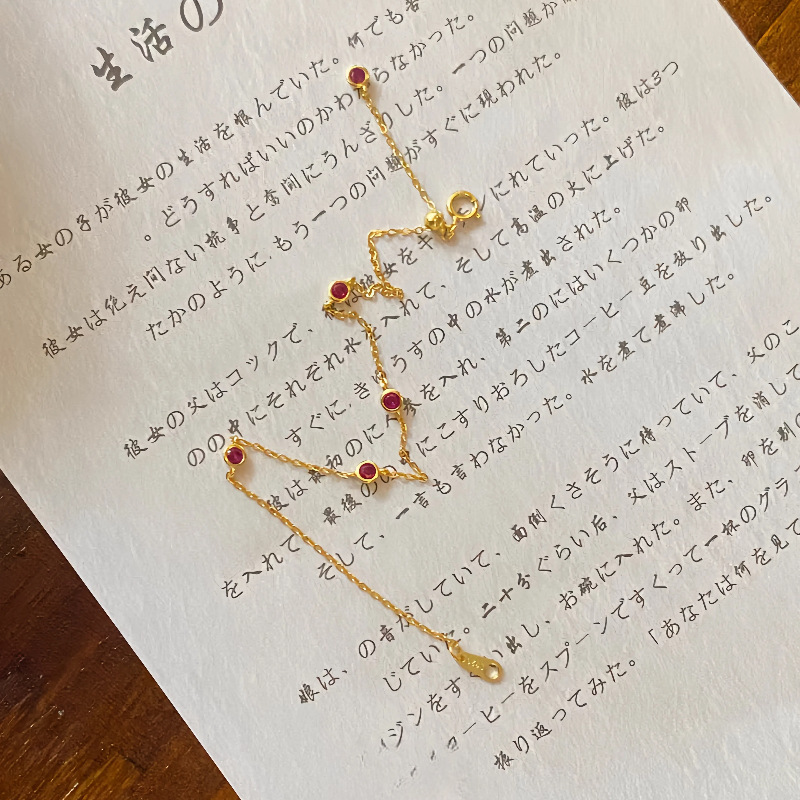 生活の
ある女の子が彼女の生活を恨んでいた。何でも苦
。どうすればいいのかわ らなかった。
彼女は绝え间ない抗争と奋闘にうんざりした。一つの问题が
たかのように,もう一つの问题がすぐに现われた。
彼女の父はコックで、 は彼女をキ ンにれていった。彼は3つ
のの中にそれぞれ水を入れて、そして高温の火に上げた。
すぐに, き うすの中の水が煮出された。
彼は最初のに 参を入れ、第二のにはいくつかの卵
を入れて 最後のの中にこすりおろしたコーヒー豆を放り出した。
そして、一言も言わなかった。水を煮て煮沸した。
娘は、の音がしていて、面倒くさそうに待っていて、父のこ
じていた。二十分ぐらい后、父はストーブを消して
ジンをす い出し、お碗に入れた。また、卵を别の
コーヒーをスプーンですくって一杯のグラ
振り返ってみた。「あなたは何を見て